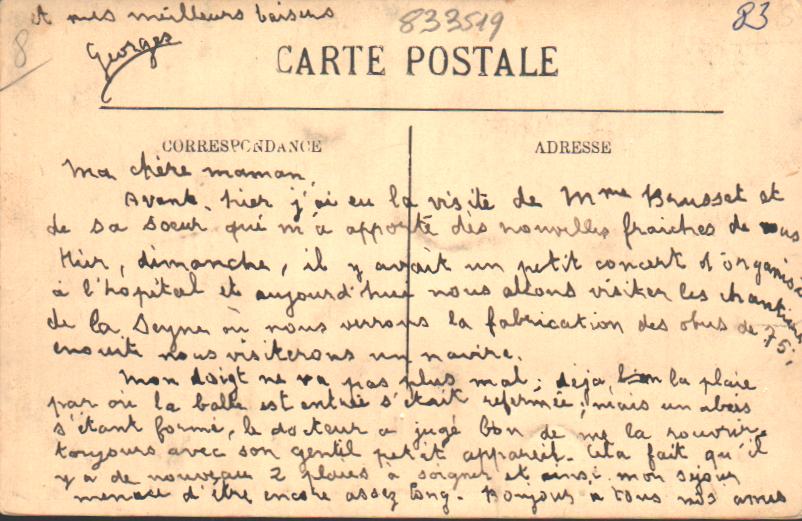 et mes meilleurs baisers
Georges
833519
83
8
CARTE POSTALE
CORRESPONDANCE
ADRESSE
Ma chère maman,
Avant-hier j'ai eu la visite de Mme Brusset et
de sa soeur qui m'a apporté des nouvelles fraiches de vous
Hier, dimanche, il y avait un petit concert d'organisé
à l'hopital et aujourd'hui nous allons visiter les chantiers
de la Seyne où nous verrons la fabrication des obus de 75;
ensuite nous visiterons un navire.
Mon doigt ne va pas plus mal; déja, la plaie
par où la balle est entrée s'était refermée, mais un abcès
s'étant formé, le docteur a jugé bon de me la rouvrir
toujours avec son gentil petit appareil. Cela fait qu'il
y a de nouveau 2 plaies à soigner et ainsi mon séjour
menace d'être encore assez long. Bonjour à tous nos amis